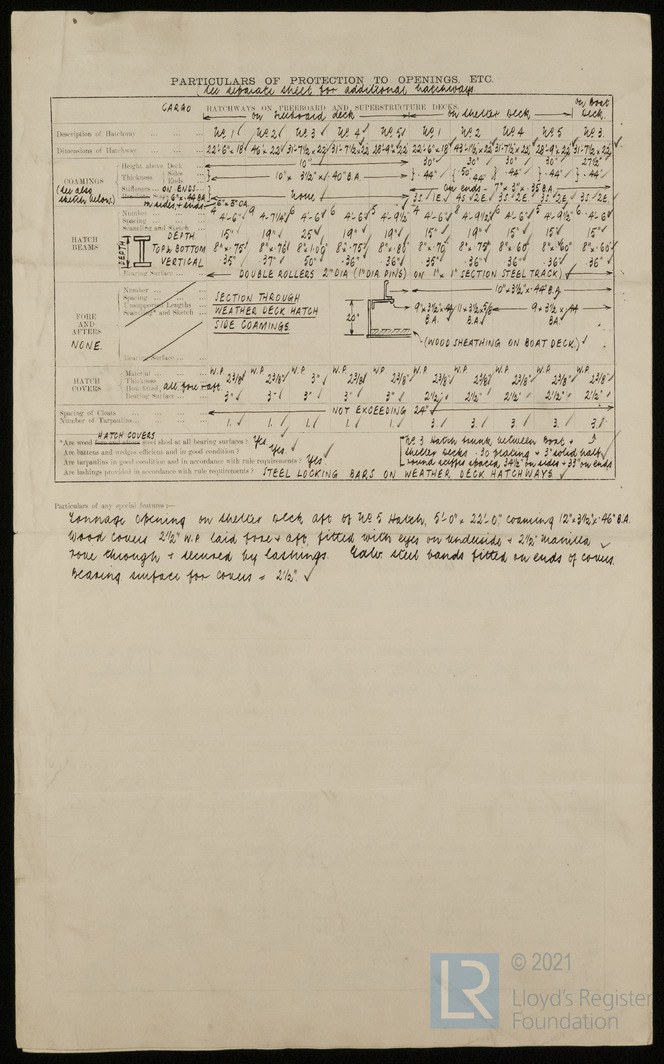 PARTICULARS OF PROTECTION TO OPENINGS, ETC.
(See separate sheet for additional hatchways.
CARGO HATCHWAYS ON FREEBOARD AND SUPERSTRUCTURE DECKS.
on Freeboard deck on shelter deck. on Boat deck.
Description of Hatchway Nº 1 Nº 2 Nº 3 Nº 4 Nº 5 Nº 1 Nº 2 Nº 4 Nº 5 Nº 3.
Dimensions of Hatchway 22'-6" x 18' 46' x 22' 31'-7½ x 22' 31'-7½ x 22' 28'-9" x 22' 22'-6" x 18' 43'-1½ x 22' 31'-7½ x 22' 28'-9" x 22' 31'-7½ x 22'
COAMINGS (See also sketch below)
Height above Deck 10" 30" 30" 30" 30" 27½"
Thickness Sides Ends 10" x 3½" x .40" B.A. .44" .50" .44" .44" .44" .44"
Stiffeners ON ENDS. None on ends - 7" x 3" x .35 B.A.
6" x .44 B.A. on sides & ends 6" x 3" O.A. 3S 1E. 4S 2E 3S 2E. 3S 2E. 3S 2E
HATCH BEAMS
Number 4 9 6 6 5 4 8 6 5 6
Spacing 4'-6" 4'-7¼" 4'-6" 4'-6" 4'-9½" 4'-6" 4'-9½" 4'-6" 4'-9½" 4'-6"
Scantling and Sketch
DEPTH DEPTH. 15" 19" 25" 19" 19" 15" 19" 15" 15" 15"
TOP & BOTTOM 8" x .75" 8" x .76" 8" x 1.00" 8" x .75" 8" x .80" 8" x .70" 8" x .75" 8" x .60" 8" x .60" 8" x .60"
VERTICAL .35" .37" .50" .36" .36" .35" .36" .36" .36" .36"
Bearing Surface DOUBLE ROLLERS 2" DIA (1" DIA PINS) ON 1" x 1" SECTION STEEL TRACK)
FORE AND AFTERS NONE.
Number
Spacing
Unsupported Lengths
Scantling* and Sketch
Bearing Surface
SECTION THROUGH
WEATHER DECK HATCH
SIDE COAMINGS
20"
10" x 3½" x .44" B.A.
9" x 3½" x .44 B.A. 11 x 3½ x 5/8 B.A. 9 x 3½ x .44 B.A.
(WOOD SHEATHING ON BOAT DECK.)
HATCH COVERS
Material W.P. W.P. W.P. W.P. W.P. W.P. W.P. W.P. W.P. W.P.
Thickness 2 3/8" 2 3/8" 3" 2 3/8" 2 3/8" 2 3/8" 2 3/8" 2 3/8" 2 3/8" 2 3/8"
How fitted, all fore & aft.
Bearing Surface 3" 3" 3" 3" 3" 2½" 2½" 2½" 2½" 2½"
Spacing of Cleats NOT EXCEEDING 24"
Number of Tarpaulins 1. 1. 1. 1. 1. 3. 3. 3. 3. 3.
HATCH COVERS
*Are wood fore and afters steel shod at all bearing surfaces? Yes
Are battens and wedges efficient and in good condition? Yes.
Are tarpaulins in good condition and in accordance with rule requirements? Yes.
Are lashings provided in accordance with rule requirements? STEEL LOCKING BARS ON WEATHER DECK HATCHWAYS
Nº 3 Hatch trunk between Boat &
Shelter decks - .30 plating & 3" solid half
round stiffrs spaced 34½" on sides & 33" on ends
Particulars of any special features:—
Tonnage opening on shelter deck aft of Nº 5 Hatch, 5'-0" x 22'-0" coaming 12" x 3½" x .46" B.A.
Wood covers 2½" W.P. laid fore & aft, fitted with eyes on underside & 2½" manilla
rove through & secured by lashings. Galv. steel bands fitted on ends of covers.
Bearing surface for covers = 2½".
LR
© 2021
Lloyd's Register
Foundation